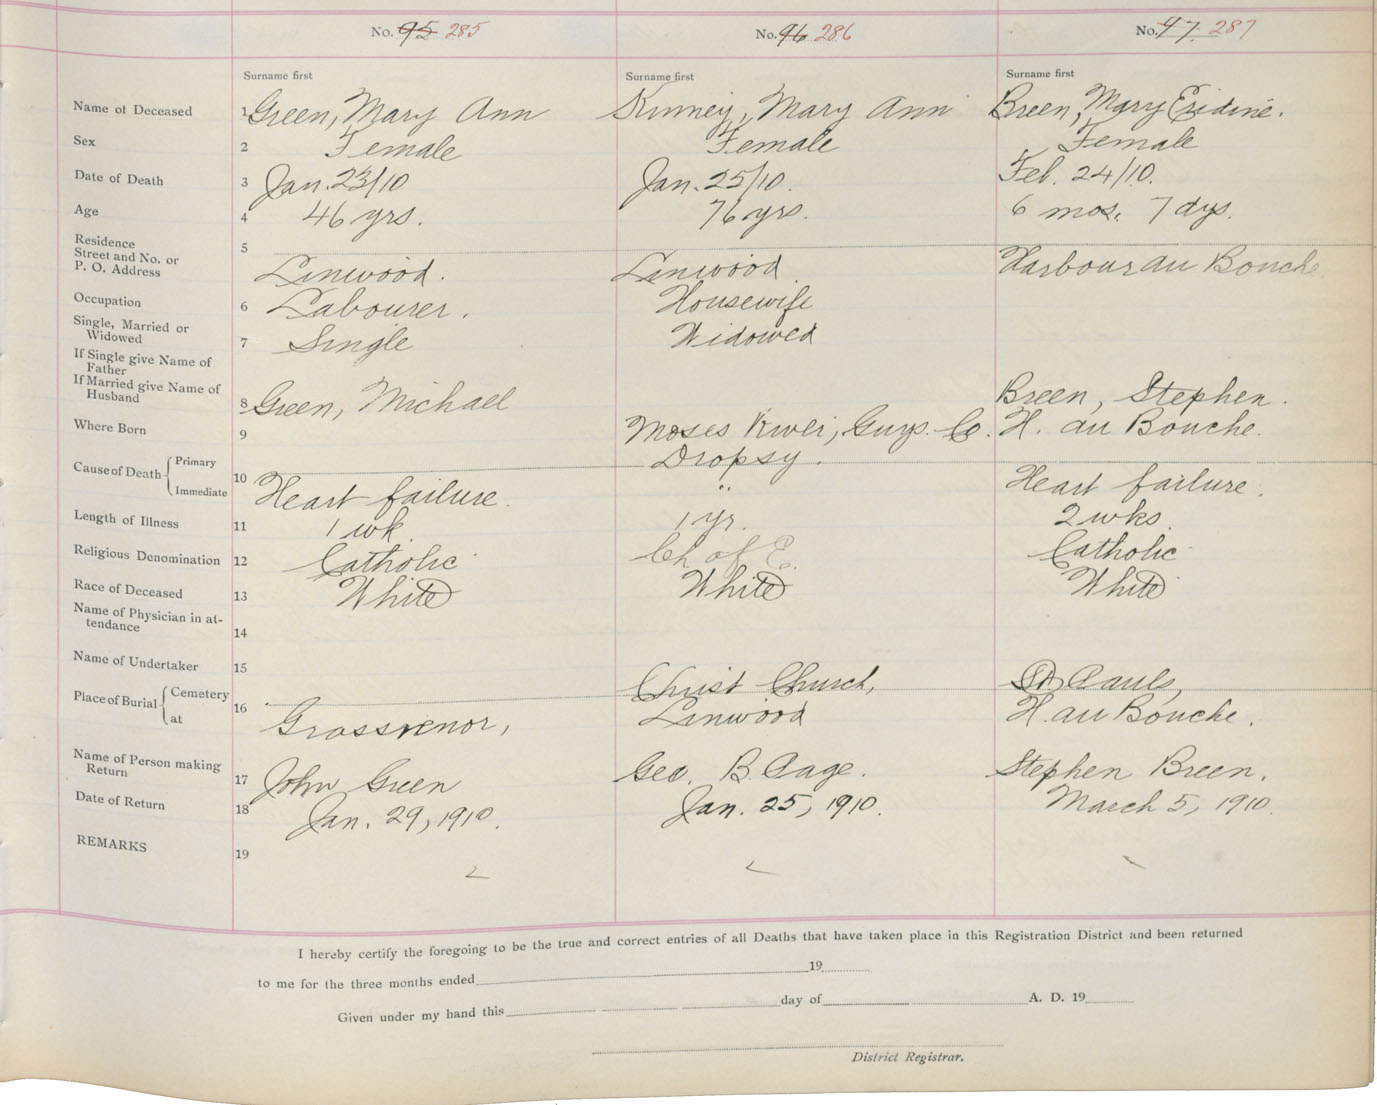 No. 95 285 No. 96 286 No. 97 287
Surname first Surname first Surname first
Name of Deceased 1 Green, Mary Ann Kinney, Mary Ann Breen, Mary
Sex 2 Female Female Female
Date of Death 3 Jan. 23/10 Jan. 25/10. Feb. 24/10.
Age 4 46 yrs. 76 yrs. 6 mos. 7 dys.
Residence
Street and No. or
P. O. Address 5 Linwood. Linwood Harbour au Bouche
Occupation 6 Labourer. Housewife
Single, Married or
Widowed 7 Single Widowed
If Single give Name of
Father
If Married give Name of
Husband 8 Green, Michael Breen, Stephen.
Where Born 9 Moses River, Guys. Co. H. au Bouche.
Cause of Death Primary Dropsy.
Immediate 10 Heart failure. " Heart failure.
Length of Illness 11 1 wk. 1 yr. 2 wks.
Religious Denomination 12 Catholic Ch of E. Catholic
Race of Deceased 13 White White White
Name of Physician in at-
tendance 14
Name of Undertaker 15
Place of Burial Cemetery Christ Church, St Pauls,
at 16 Grosvenor, Linwood H. au Bouche.
Name of Person making
Return 17 John Green Geo. B. Page. Stephen Breen.
Date of Return 18 Jan. 29, 1910. Jan. 25, 1910. March 5, 1910.
REMARKS 19
I hereby certify the foregoing to be the true and correct entries of all Deaths that have taken place in this Registration District and been returned
to me for the three months ended 19
Given under my hand this day of A. D. 19
District Registrar.